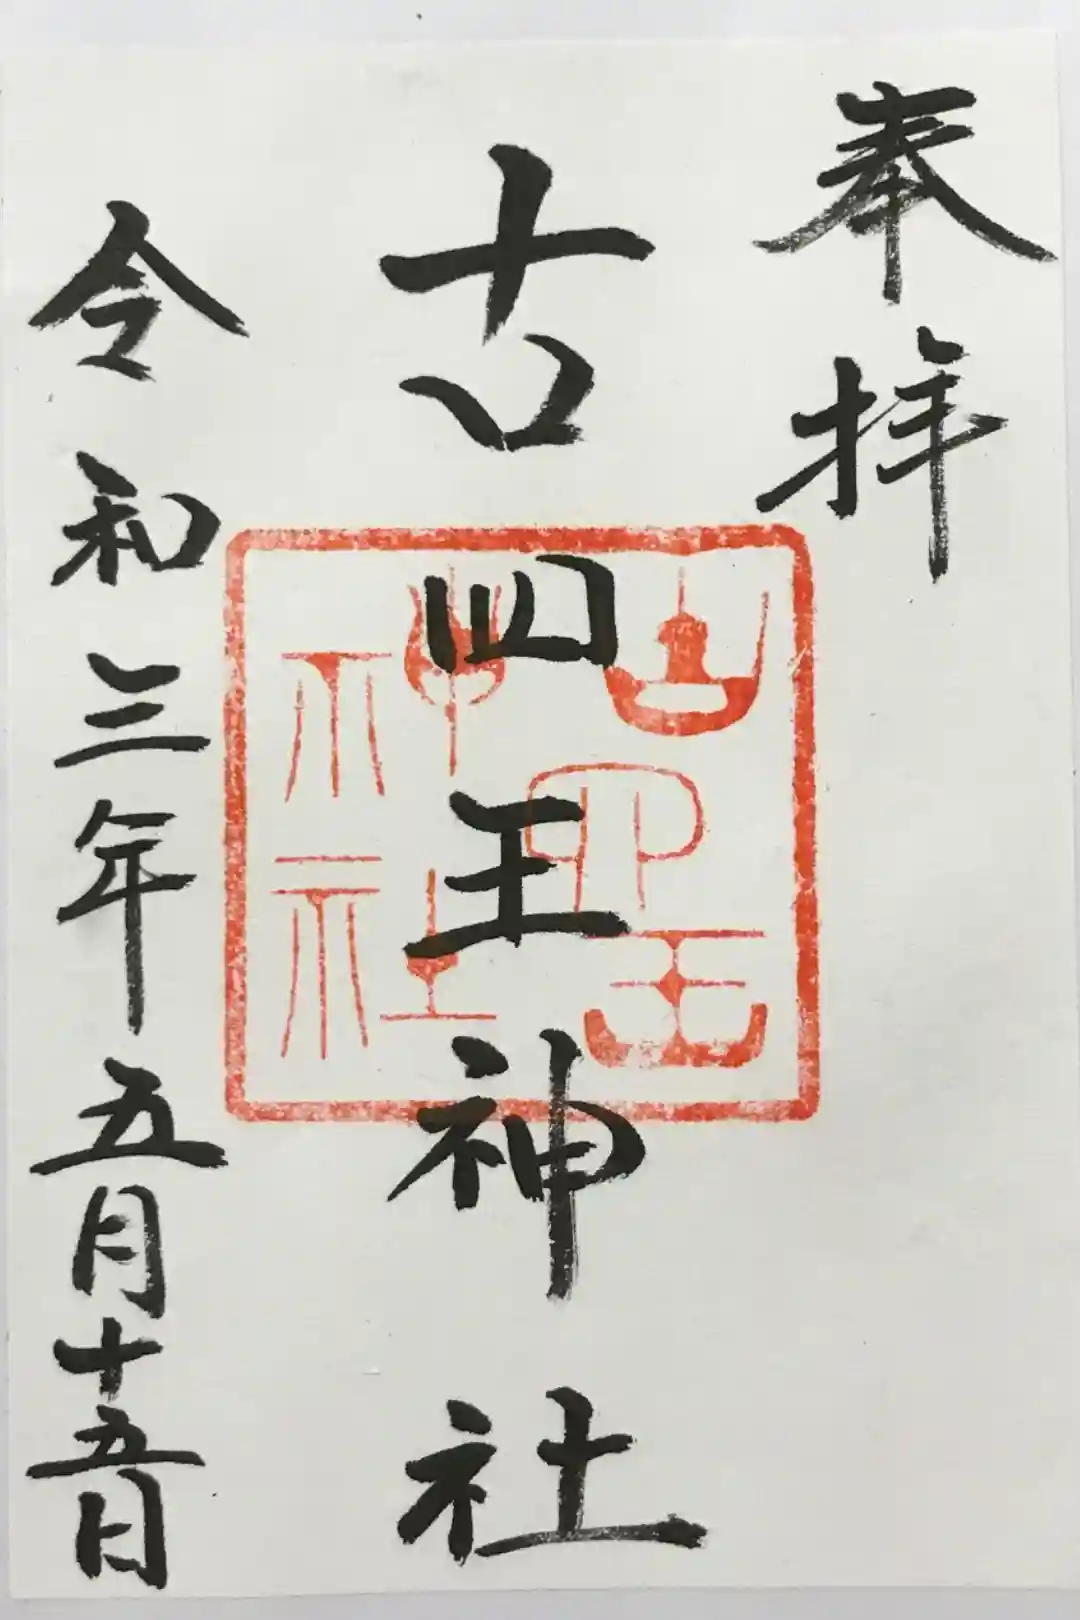 奉拝
古四王神社
古四王
神社
令和三年五月十五日